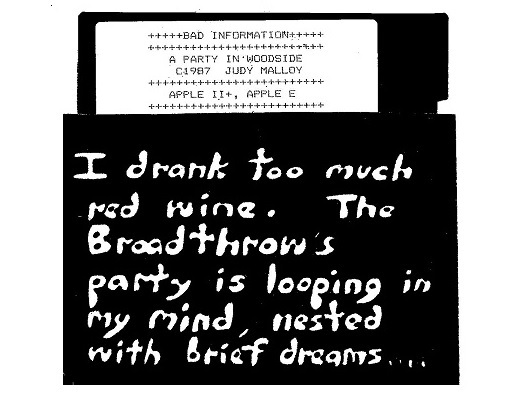 +++++BAD INFORMATION+++++
+++++++++++++++++++++++++
A PARTY IN WOODSIDE
C1987 JUDY MALLOY
+++++++++++++++++++++++++
APPLE II+, APPLE E
+++++++++++++++++++++++++
I drank too much
red wine. The
Broadthrow's
party is looping in
my mind, nested
with brief dreams....